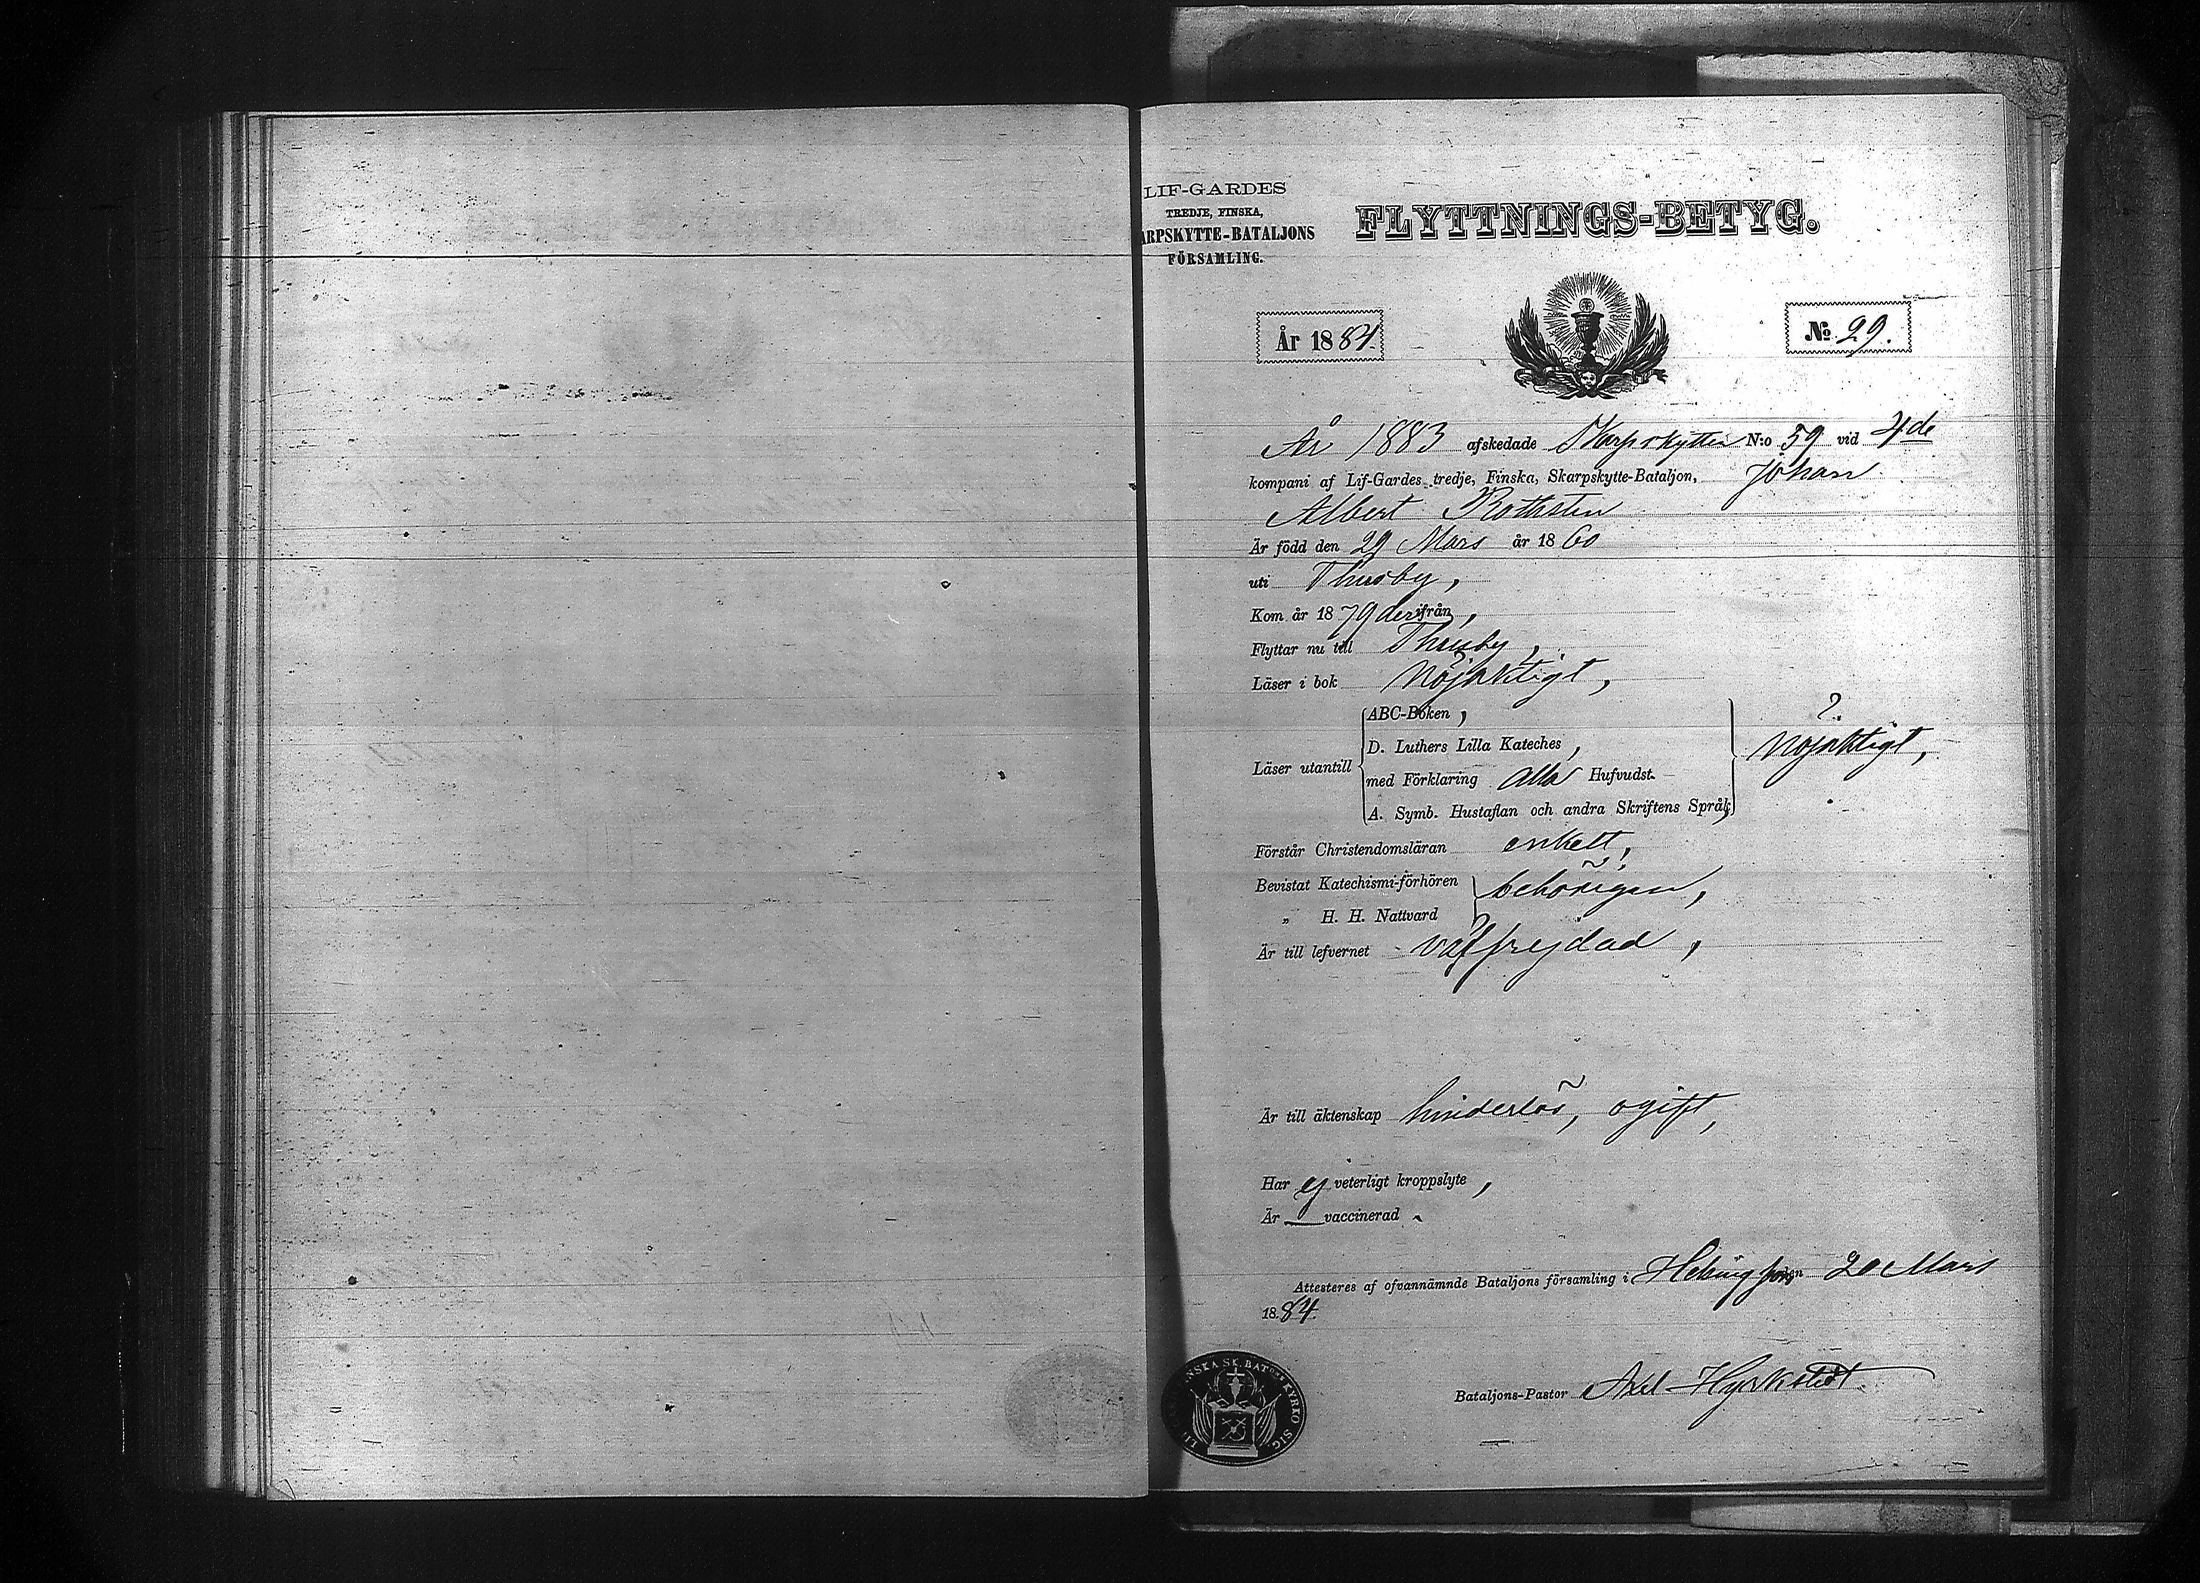 LIF-GARDES
TREDJE, FINSKA,
ARPSKYTTE-BATALJONS
FÖRSAMLING.
FLYTTNINGS-BETYG.
År 1884.
No 29.
År 1883 afskedade Skarpskytten N:o 59 vid 4de
kompani af Lif-Gardes tredje, Finska, Skarpskytte-Bataljon, Johan
Albert Rothsten
Är född den 29 Mars år 1860
uti Thusby,
Kom år 1879 derifrån,
Flyttar nu till Thusby,
Läser i bok Nöjaktigt,
Läser utantill
ABC-Boken,
D. Luthers Lilla Kateches,
med Förklaring alla Hufvudst.
A. Symb. Hustaflan och andra Skriftens Språk,
Nöjaktigt,
Förstår Christendomsläran enkelt,
Bevistat Katechismi-förhören
„ H. H. Nattvard
behörigen,
Är till lefvernet välfrejdad,
Är till äktenskap hinderlös, ogift,
Har ej veterligt kroppslyte,
Är — vaccinerad.
Attesteres af ofvannämnde Bataljons församling i Helsingfors den 20 Mars
1884.
Bataljons-Pastor Axel Hyrkstedt.
NSKA SK. BATNS KYRKO SIG.